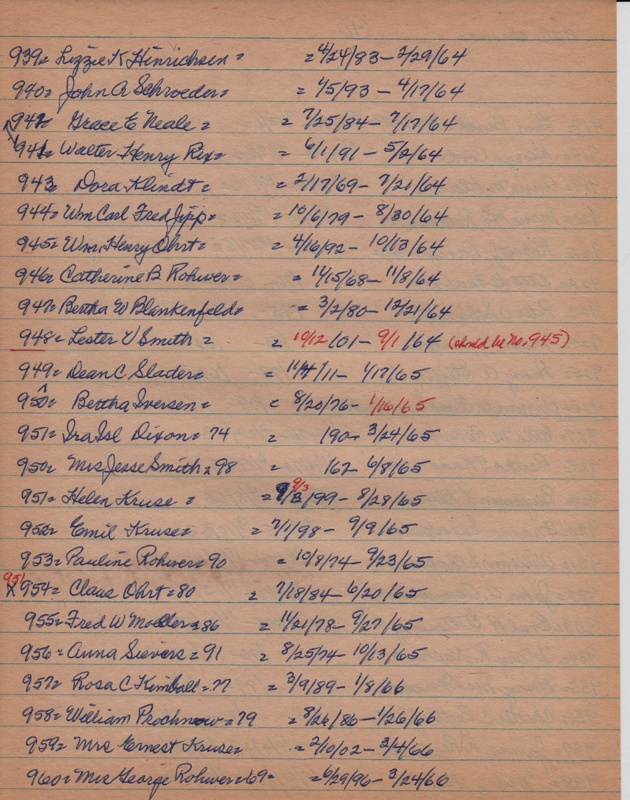 939= Lizzie K Hinrichsen = = 4/24/83 - 2/29/64
940= John A Schroeder = = 1/5/93 - 4/17/64
942= Grace E Neale = = 7/25/84 - 7/17/64
941= Walter Henry Rix = = 6/1/91 - 5/2/64
943= Dora Klindt = = 2/17/69 - 7/21/64
944= Wm Carl Fred Jipp = = 10/6/79 - 8/30/64
945= Wm. Henry Ohrt = = 4/16/92 - 10/13/64
946= Catherine B Rohwer = = 11/15/68 - 11/8/64
947= Bertha W Blankenfeld = = 3/2/80 - 12/21/64
948= Lester V Smith = = 10/12/01 - 9/1/64 (should be No. 945)
949= Dean C Slader = = 11/4/11 - 1/17/65
950= Bertha Iversen = = 8/20/76 - 1/16/65
951= Ira Isl Dixon = 74 = 190 - 3/24/65
950= Mrs Jesse Smith = 98 = 162 - 6/8/65
951= Helen Kruse = = 9/3/99 - 8/28/65 9/3
952= Emil Kruse = = 7/1/98 - 9/9/65
953= Pauline Rohwer = 90 = 10/8/74 - 9/23/65
951 X 954= Claus Ohrt = 80 = 7/18/84 - 6/20/65
955= Fred W Moeller = 86 = 11/21/78 - 9/27/65
956= Anna Sievers = 91 = 8/25/74 - 10/13/65
957= Rosa C Kimball = 77 = 3/9/89 - 1/8/66
958= William Prochnow = 79 = 8/26/86 - 1/26/66
959= Mrs Ernest Kruse = = 2/10/02 - 3/4/66
960= Mrs George Rohwer = 69 = = 6/29/96 - 3/24/66